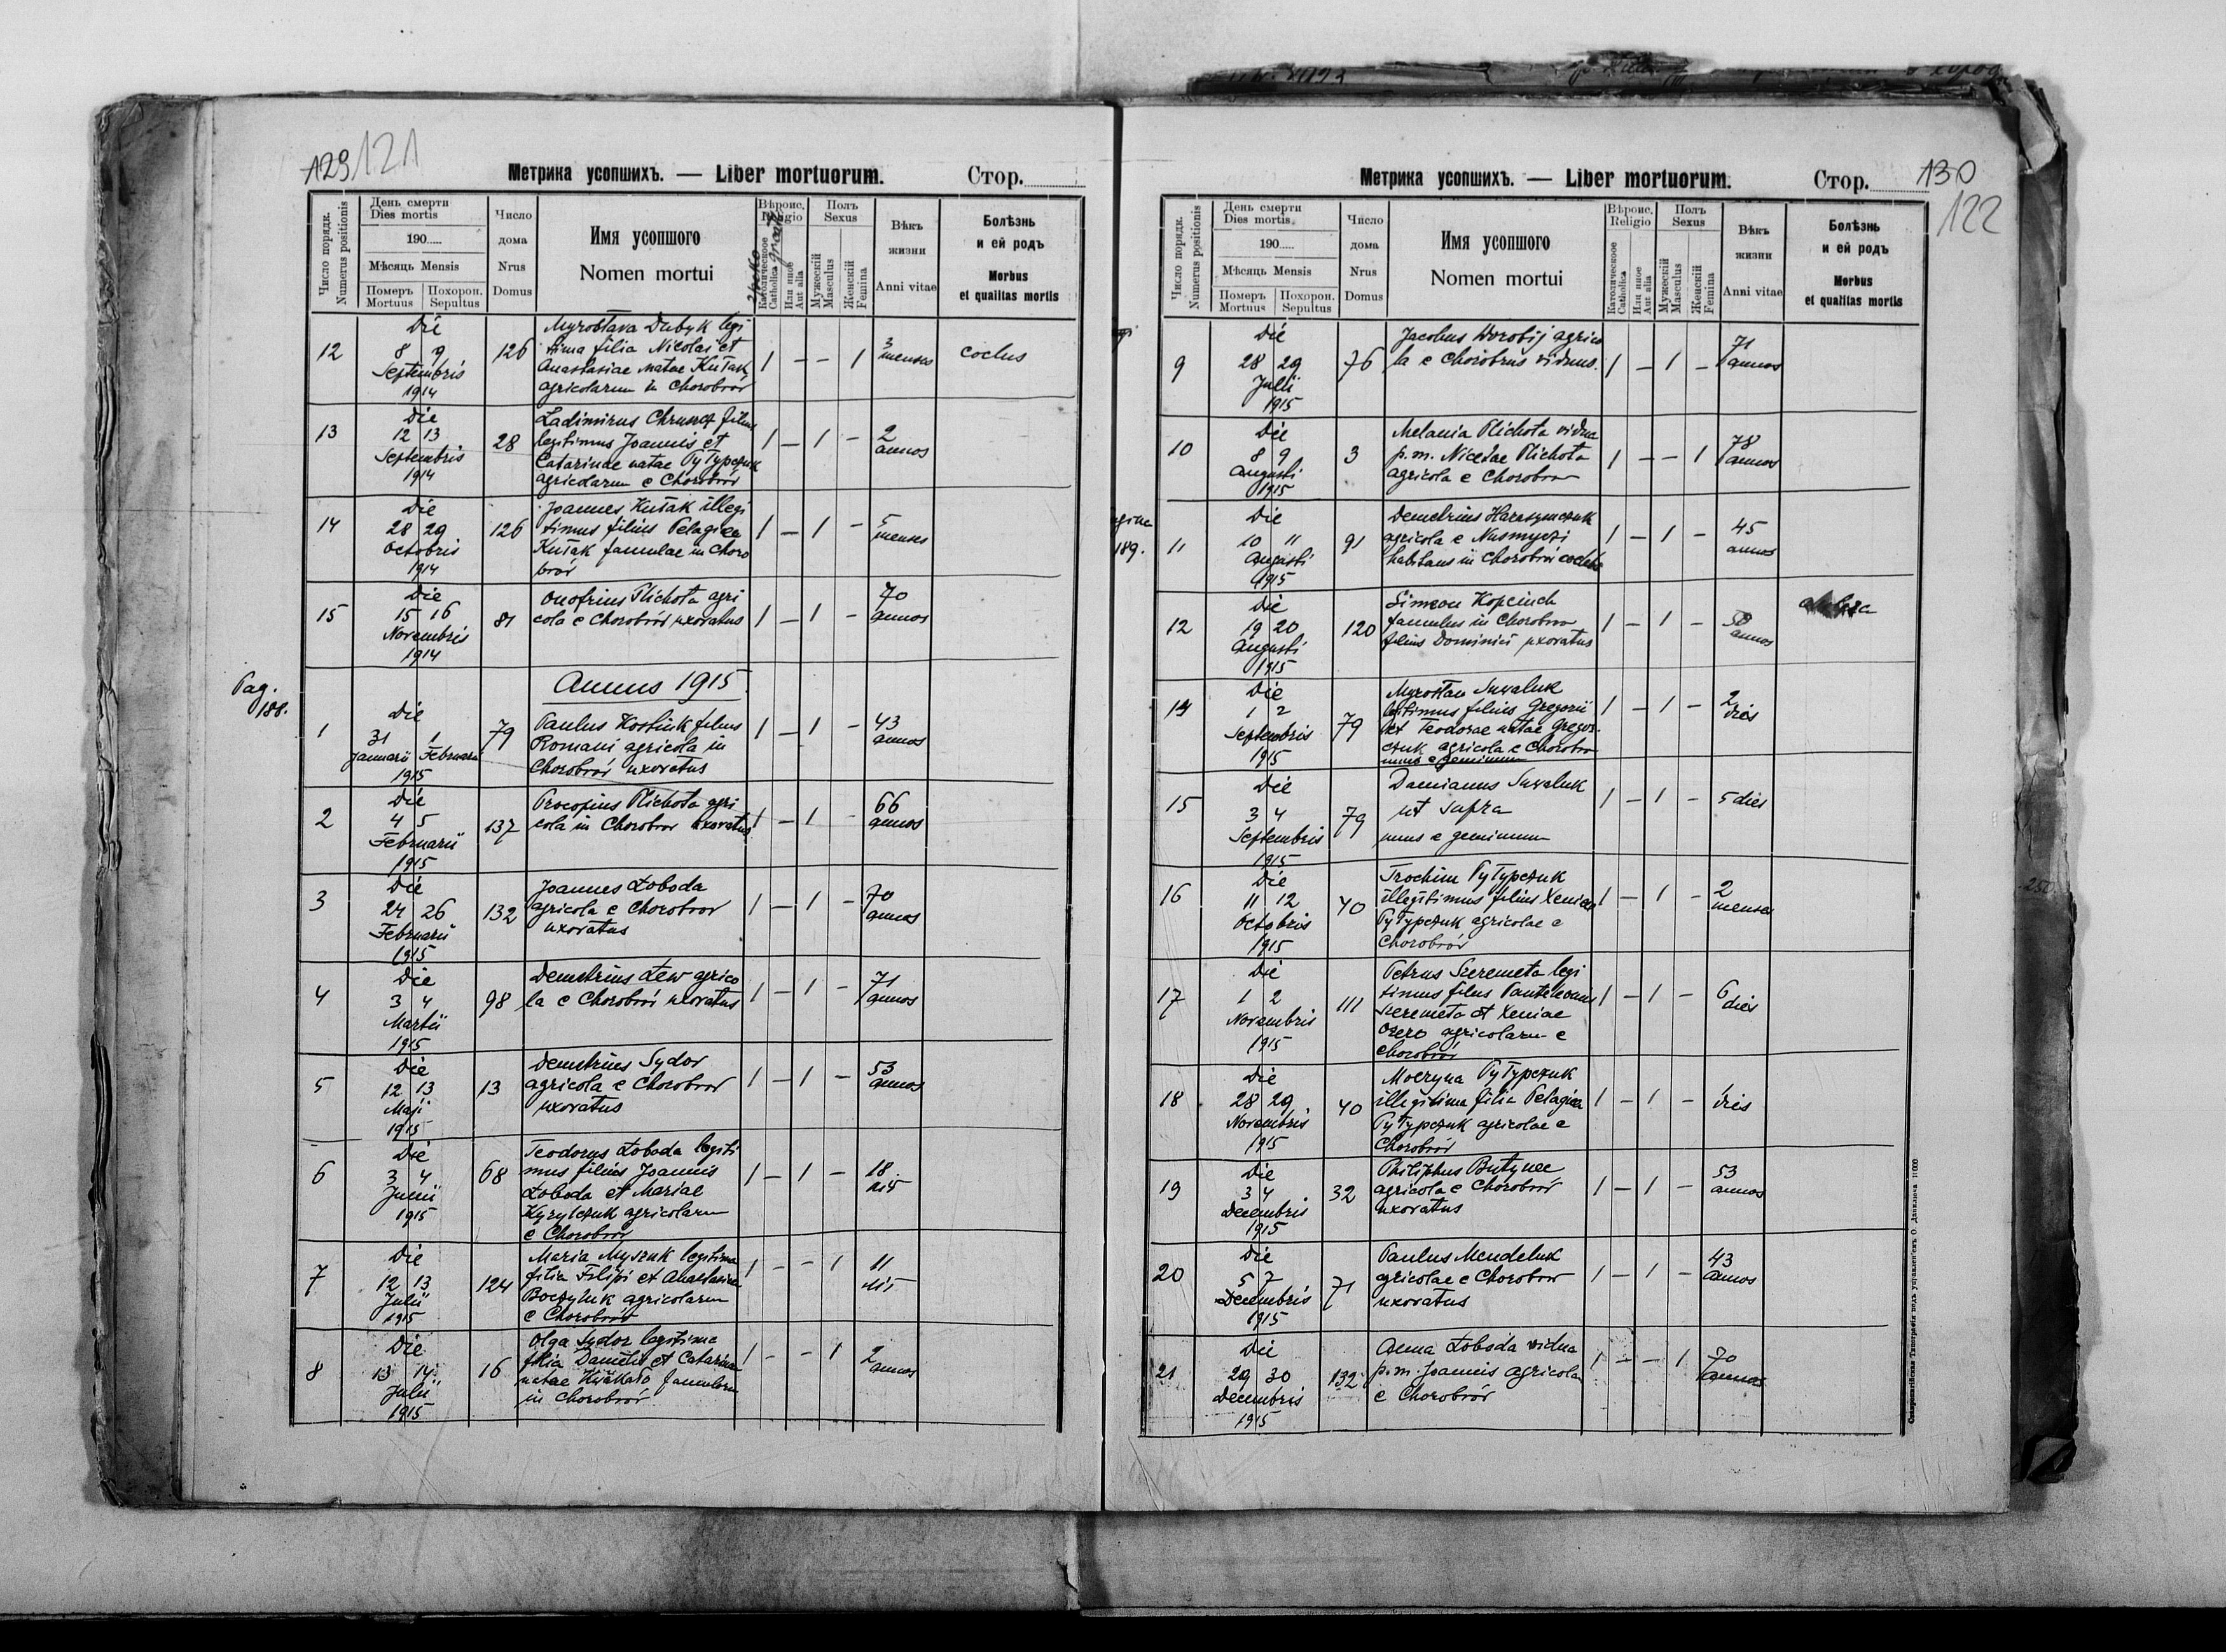 129 121
Метрика усопшихъ. — Liber mortuorum. Стор.
Число порядк. Numerus positionis
День смерти
Dies mortis
190.....
Мѣсяць Mensis
Померъ Mortuus
Похорон. Sepultus
Число дома Nrus Domus
Имя усопшого
Nomen mortui
Вѣроис. Religio
Католическое Catholica
Или иное Aut alia
Полъ Sexus
Мужескій Masculus
Женскій Femina
Вѣкъ жизни Anni vitae
Болѣзнь и ей родъ
Morbus et qualitas mortis
12 Die 8 9 Septembris 1914 126
Myrosłava Dubyk legi
tima filia Nicolai et
Anastasiae natae Kułak
agricolarum in Chorobrów
1 – – 1 3 menses
13 Die 12 13 Septembris 1914 28
Ladimirus filius
legitimus Joannis et
Catarinae natae Pyłypczuk
agricolarum e Chorobrów
1 – 1 – 2 annos
14 Die 28 29 Octobris 1914 126
Joannes Kułak illegi
timus filius Pelagiae
Kułak famulae in Choro
brów
1 – 1 – 5 menses
15 Die 15 16 Novembris 1914 81
Onofrius Plichota agri
cola e Chorobrów uxoratus
1 – 1 – 70 annos
Annus 1915
Pag.
188.
1 Die 31 Januarii 1 Februarii 1915 79
Paulus filius
Romani agricola in
Chorobrów uxoratus
1 – 1 – 43 annos
2 Die 4 5 Februarii 1915 137
Procopius Plichota agri
cola in Chorobrow uxoratus
1 – 1 – 66 annos
3 Die 24 26 Februarii 1915 132
Joannes Łoboda
agricola e Chorobrow
uxoratus
1 – 1 – 70 annos
4 Die 3 4 Martii 1915 98
Demetrius Łew agrico
la e Chorobrów uxoratus
1 – 1 – 71 annos
5 Die 12 13 Maji 1915 13
Demetrius Sydor
agricola e Chorobrow
uxoratus
1 – 1 – 53 annos
6 Die 3 4 Junii 1915 68
Teodorus Łoboda legiti
mus filius Joannis
Łoboda et Mariae
Kyrylczuk agricolarum
e Chorobrów
1 – 1 – 18
7 Die 12 13 Julii 1915 124
Maria Myszuk legitima
filia Filipi et Anastasiae
agricolarum
e Chorobrów
1 – – 1 11
8 Die 13 14 Julii 1915 16
Olga Sydor legitima
filia Danielis et Catarinae
natae famulorum
in Chorobrów
1 – – 1 2 annos
130
122
Метрика усопшихъ. — Liber mortuorum. Стор.
Число порядк. Numerus positionis
День смерти
Dies mortis
190.....
Мѣсяць Mensis
Померъ Mortuus
Похорон. Sepultus
Число дома Nrus Domus
Имя усопшого
Nomen mortui
Вѣроис. Religio
Католическое Catholica
Или иное Aut alia
Полъ Sexus
Мужескій Masculus
Женскій Femina
Вѣкъ жизни Anni vitae
Болѣзнь и ей родъ
Morbus et qualitas mortis
9 Die 28 29 Julii 1915 76
Jacobus Worobij agrico
la e Chorobrus viduus.
1 – 1 – 71 annos
10 Die 8 9 Augusti 1915 3
Melania Plichota vidua
p.m. Nicetae Plichota
agricola e Chorobrow
1 – – 1 78 annos
189.
11 Die 10 11 Augusti 1915 91
Demetrius Harasymczuk
agricola e
habitans in Chorobrów
1 – 1 – 45 annos
12 Die 19 20 Augusti 1915 120
Simeon Kopciuch
famulus in Chorobrow
filius Dominici uxoratus
1 – 1 – 50 annos
14 Die 1 2 Septembris 1915 79
Myrosłau Suwaluk
legitimus filius Gregorii
et Teodorae natae Gregor
czuk agricola e Chorobrow
unus e geminum
1 – 1 – 2 dies
15 Die 3 4 Septembris 1915 79
Damianus Suwaluk
ut supra
unus e geminum
1 – 1 – 5 dies
16 Die 11 12 Octobris 1915 40
Trochim Pyłypczuk
illegitimus filius Xeniae
Pyłypczuk agricolae e
Chorobrów
1 – 1 – 2 menses
17 Die 1 2 Novembris 1915 111
Petrus Szeremeta legi
timus filius Panteleonis
Szeremeta et Xeniae
Ozero agricolarum e
Chorobrów
1 – 1 – 6 dies
18 Die 28 29 Novembris 1915 40
Pyłypczuk
illegitima filia Pelagiae
Pyłypczuk agricolae e
Chorobrów
1 – 1 – 1 dies
19 Die 3 4 Decembris 1915 32
Philiphus Butynec
agricola e Chorobrów
uxoratus
1 – 1 – 53 annos
20 Die 5 7 Decembris 1915 71
Paulus Mendeluk
agricolae e Chorobrow
uxoratus
1 – 1 – 43 annos
21 Die 29 30 Decembris 1915 132
Anna Łoboda vidua
p.m. Joannis agricolae
e Chorobrów
1 – – 1 70 annos